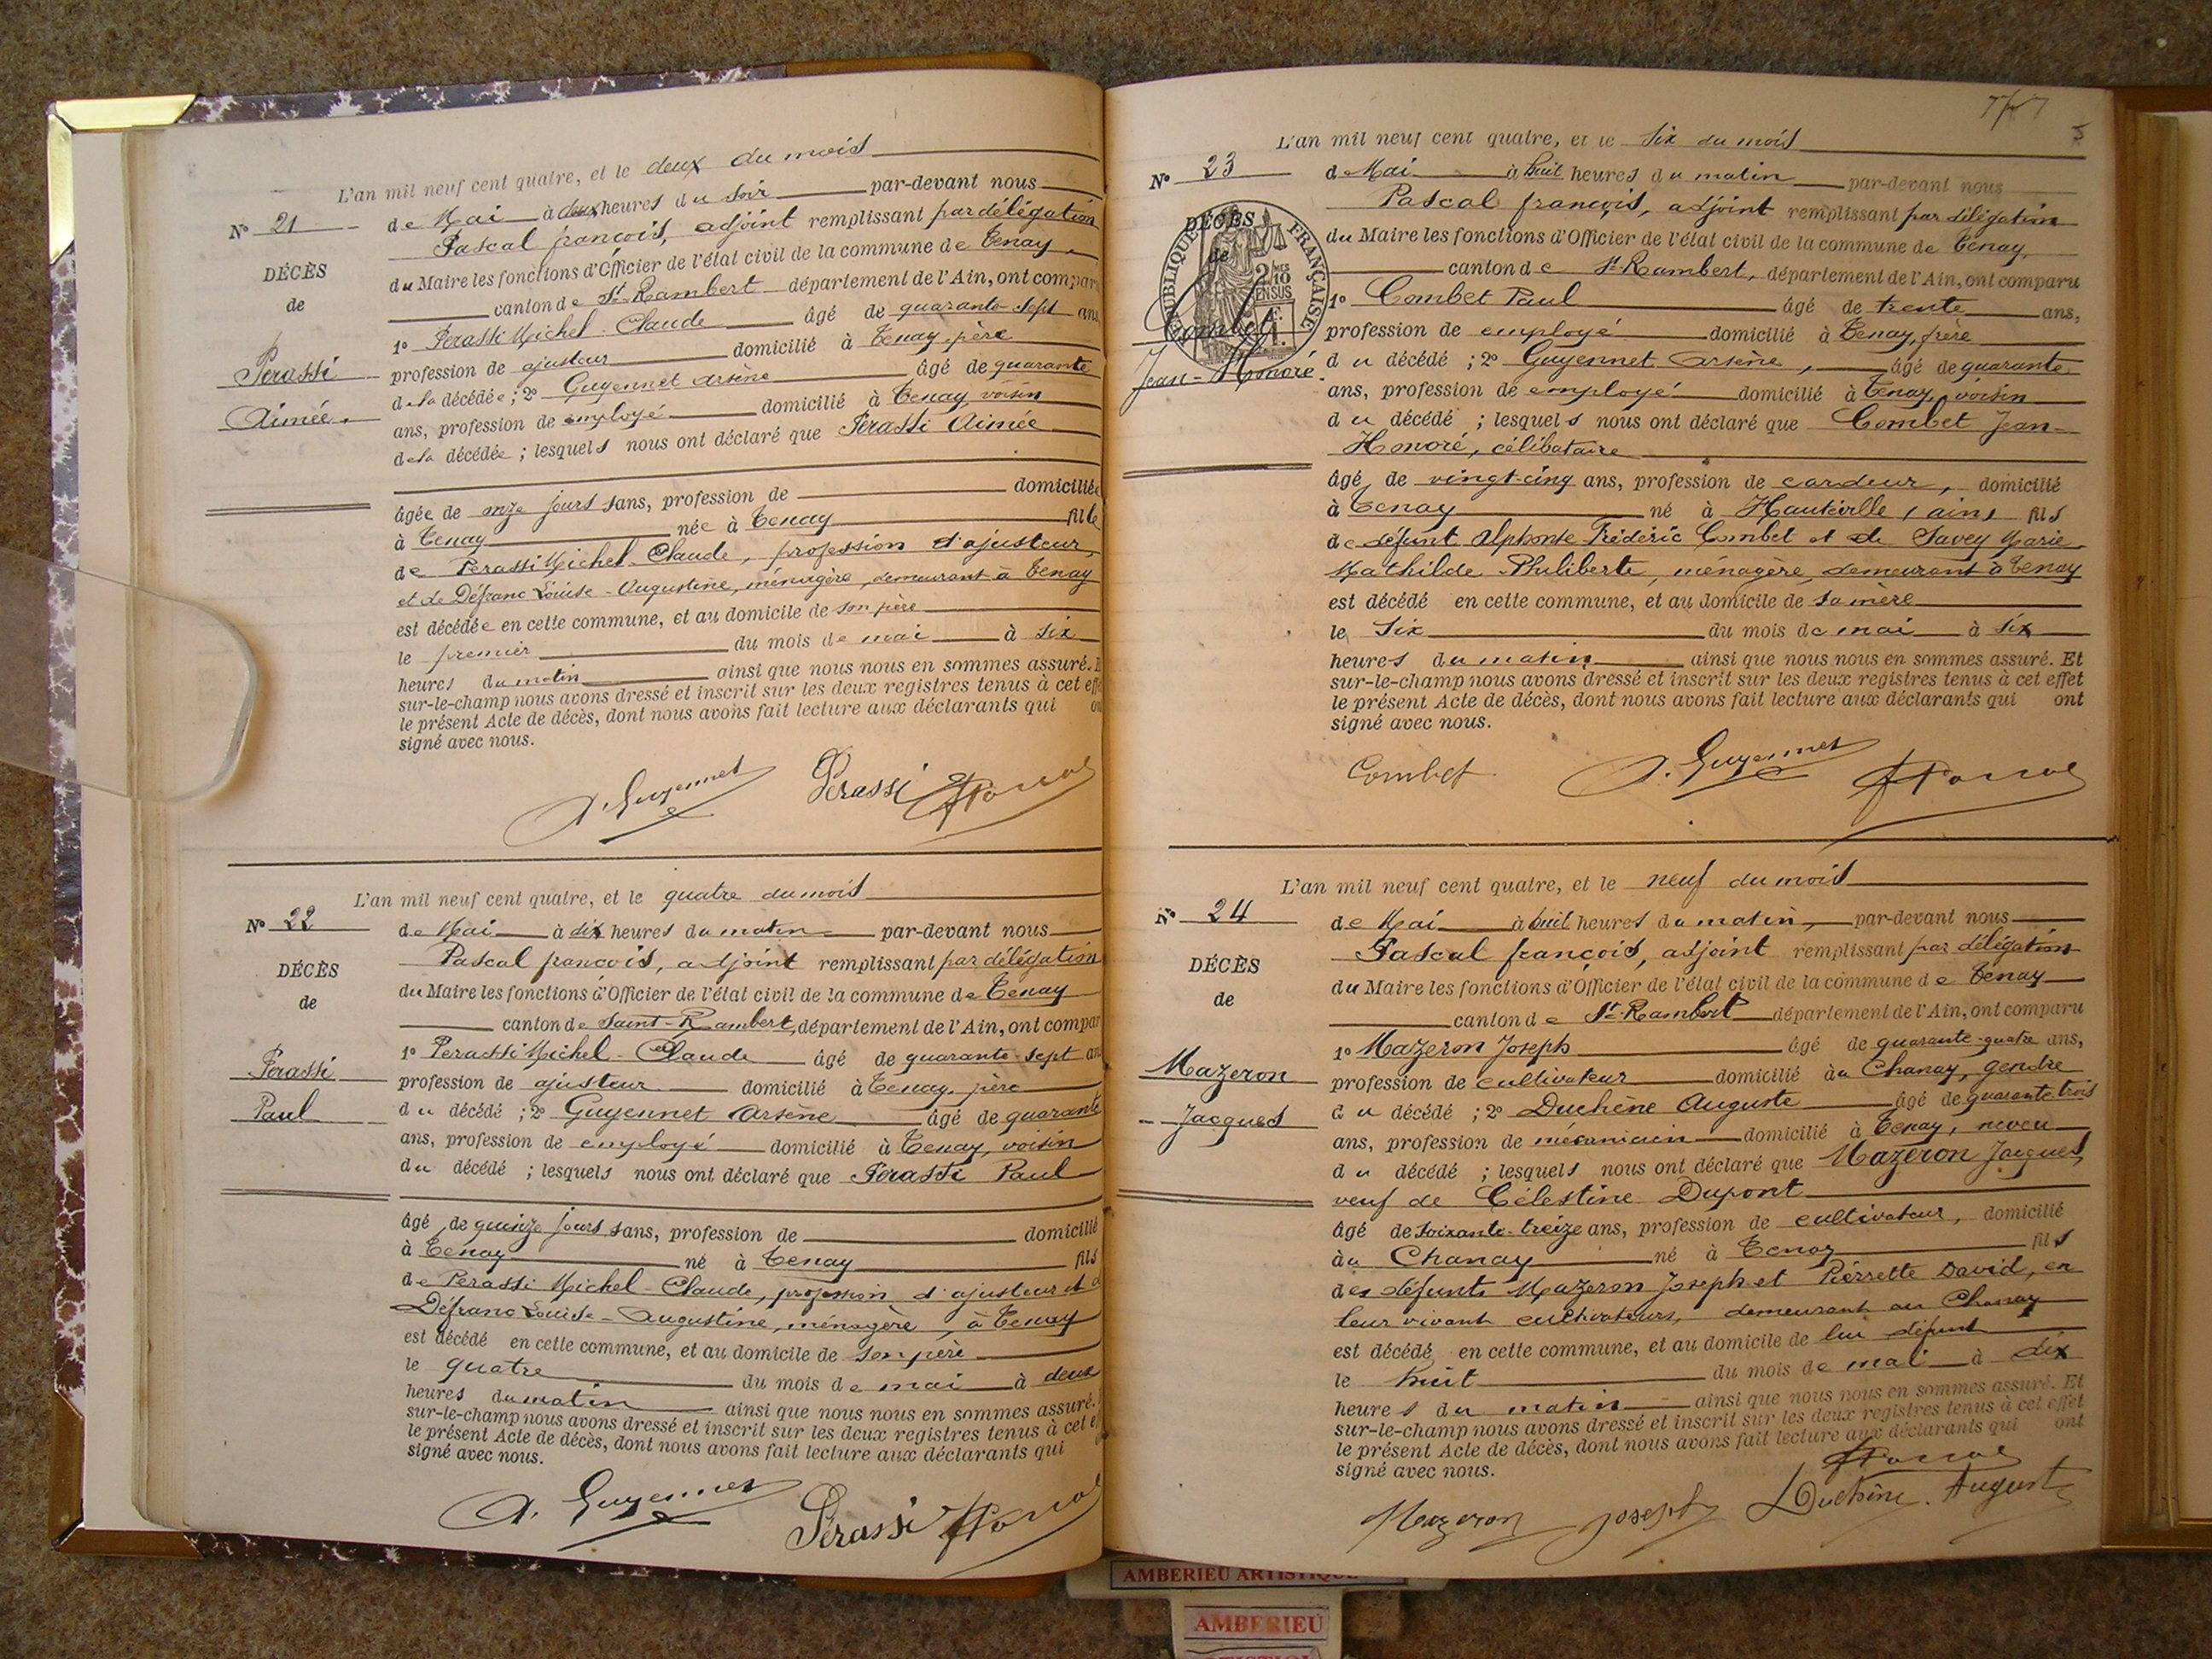 L'an mil neuf cent quatre, et le deux du mois
N° 21
de Mai à deux heures du soir par-devant nous
Pascal françois, adjoint remplissant par délégation
DÉCÈS
du Maire les fonctions d'Officier de l'état civil de la commune de Tenay,
de
canton de St Rambert département de l'Ain, ont compar
1° Perassi Michel-Claude âgé de quarante-sept ans,
Perassi
profession de ajusteur domicilié à Tenay, père
de la décédée ; 2° Guyennet Arsène âgé de quarante
Aimée
ans, profession de employé domicilié à Tenay, voisin
de la décédée ; lesquels nous ont déclaré que Perassi Aimée
âgée de onze jours sans, profession de domiciliée
à Tenay née à Tenay fille
de Perassi Michel-Claude, profession d'ajusteur,
et de Défranc Louise-Augustine, ménagère, demeurant à Tenay
est décédée en cette commune, et au domicile de son père
le premier du mois de mai à six
heures du matin ainsi que nous nous en sommes assuré.
sur-le-champ nous avons dressé et inscrit sur les deux registres tenus à cet eff
le présent Acte de décès, dont nous avons fait lecture aux déclarants qui on
signé avec nous.
A. Guyennet Perassi FPascal
L'an mil neuf cent quatre, et le quatre du mois
N° 22
de Mai à dix heures du matin par-devant nous
Pascal françois, adjoint remplissant par délégation
DÉCÈS
du Maire les fonctions d'Officier de l'état civil de la commune de Tenay
de
canton de Saint-Rambert, département de l'Ain, ont compar
1° Perassi Michel-Claude âgé de quarante-sept an
Perassi
profession de ajusteur domicilié à Tenay, père
du décédé ; 2° Guyennet Arsène âgé de quarante
Paul
ans, profession de employé domicilié à Tenay, voisin
du décédé ; lesquels nous ont déclaré que Perassi Paul
âgé de quinze jours sans, profession de domicilié
à Tenay né à Tenay fils
de Perassi Michel-Claude, profession d'ajusteur et d
Défranc Louise-Augustine, ménagère, à Tenay
est décédé en cette commune, et au domicile de son père
le quatre du mois de mai à deux
heures du matin ainsi que nous nous en sommes assuré.
sur-le-champ nous avons dressé et inscrit sur les deux registres tenus à cet e
le présent Acte de décès, dont nous avons fait lecture aux déclarants qui
signé avec nous.
A. Guyennet Perassi FPascal
L'an mil neuf cent quatre, et le six du mois
N° 23
de Mai à huit heures du matin par-devant nous
Pascal françois, adjoint remplissant par délégation
DÉCÈS
RÉPUBLIQUE FRANÇAISE
du Maire les fonctions d'Officier de l'état civil de la commune de Tenay,
de
canton de St Rambert, département de l'Ain, ont comparu
1° Combet Paul âgé de trente ans,
Combet
profession de employé domicilié à Tenay, frère
du décédé ; 2° Guyennet Arsène, âgé de quarante
Jean-Honoré
ans, profession de employé domicilié à Tenay, voisin
du décédé ; lesquels nous ont déclaré que Combet Jean-
Honoré, célibataire
âgé de vingt-cinq ans, profession de cardeur, domicilié
à Tenay né à Hauteville (ain) fils
de défunt Alphonse Frédéric Combet et de Savey Marie
Mathilde Philiberte, ménagère, demeurant à Tenay
est décédé en cette commune, et au domicile de sa mère
le six du mois de mai à six
heures du matin ainsi que nous nous en sommes assuré. Et
sur-le-champ nous avons dressé et inscrit sur les deux registres tenus à cet effet
le présent Acte de décès, dont nous avons fait lecture aux déclarants qui ont
signé avec nous.
Combet A. Guyennet FPascal
L'an mil neuf cent quatre, et le neuf du mois
N° 24
de Mai à huit heures du matin, par-devant nous
Pascal françois, adjoint remplissant par délégation
DÉCÈS
du Maire les fonctions d'Officier de l'état civil de la commune de Tenay
de
canton de St-Rambert département de l'Ain, ont comparu
1° Mazeron Joseph âgé de quarante-quatre ans,
Mazeron
profession de cultivateur domicilié au Chanay, gendre
du décédé ; 2° Duchêne Auguste âgé de quarante trois
Jacques
ans, profession de mécanicien domicilié à Tenay, neveu
du décédé ; lesquels nous ont déclaré que Mazeron Jacques,
veuf de Célestine Dupont
âgé de soixante-treize ans, profession de cultivateur, domicilié
au Chanay né à Tenay fils
des défunts Mazeron Joseph et Pierrette David, en
leur vivant cultivateurs, demeurant au Chanay
est décédé en cette commune, et au domicile de lui défunt
le huit du mois de mai à dix
heures du matin ainsi que nous nous en sommes assuré. Et
sur-le-champ nous avons dressé et inscrit sur les deux registres tenus à cet effet
le présent Acte de décès, dont nous avons fait lecture aux déclarants qui ont
signé avec nous.
FPascal
Mazeron Joseph Duchêne Auguste
AMBERIEU ARTISTIQUE
AMBERIEU